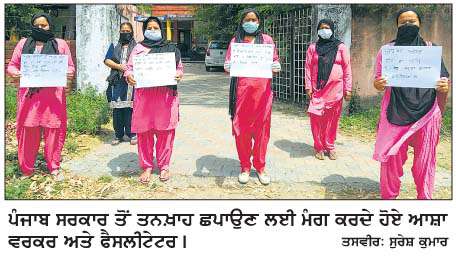 ਪੰਜਾਬ ਸਰਕਾਰ ਤੋਂ ਤਨਖ਼ਾਹ ਛਪਾਉਣ ਲਈ ਮੰਗ ਕਰਦੇ ਹੋਏ ਆਸ਼ਾ
ਵਰਕਰ ਅਤੇ ਫੈਸਲੀਟੇਟਰ।
ਤਸਵੀਰ: ਸੁਰੇਸ਼ ਕੁਮਾਰ